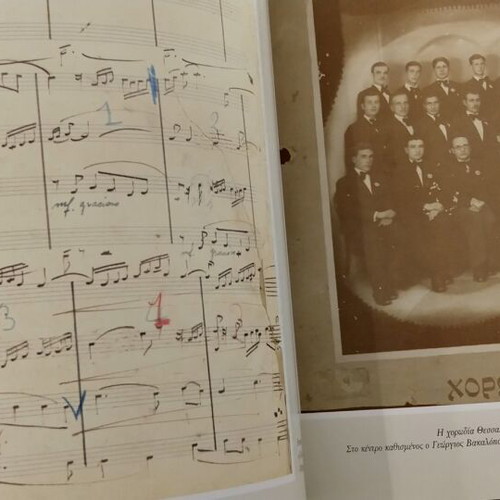 1
2
mf. gracioso
3
1
2
ΧΟΡ
Η χορωδία Θεσσα
Στο κέντρο καθισμένος ο Γεώργιος Βακαλόπο